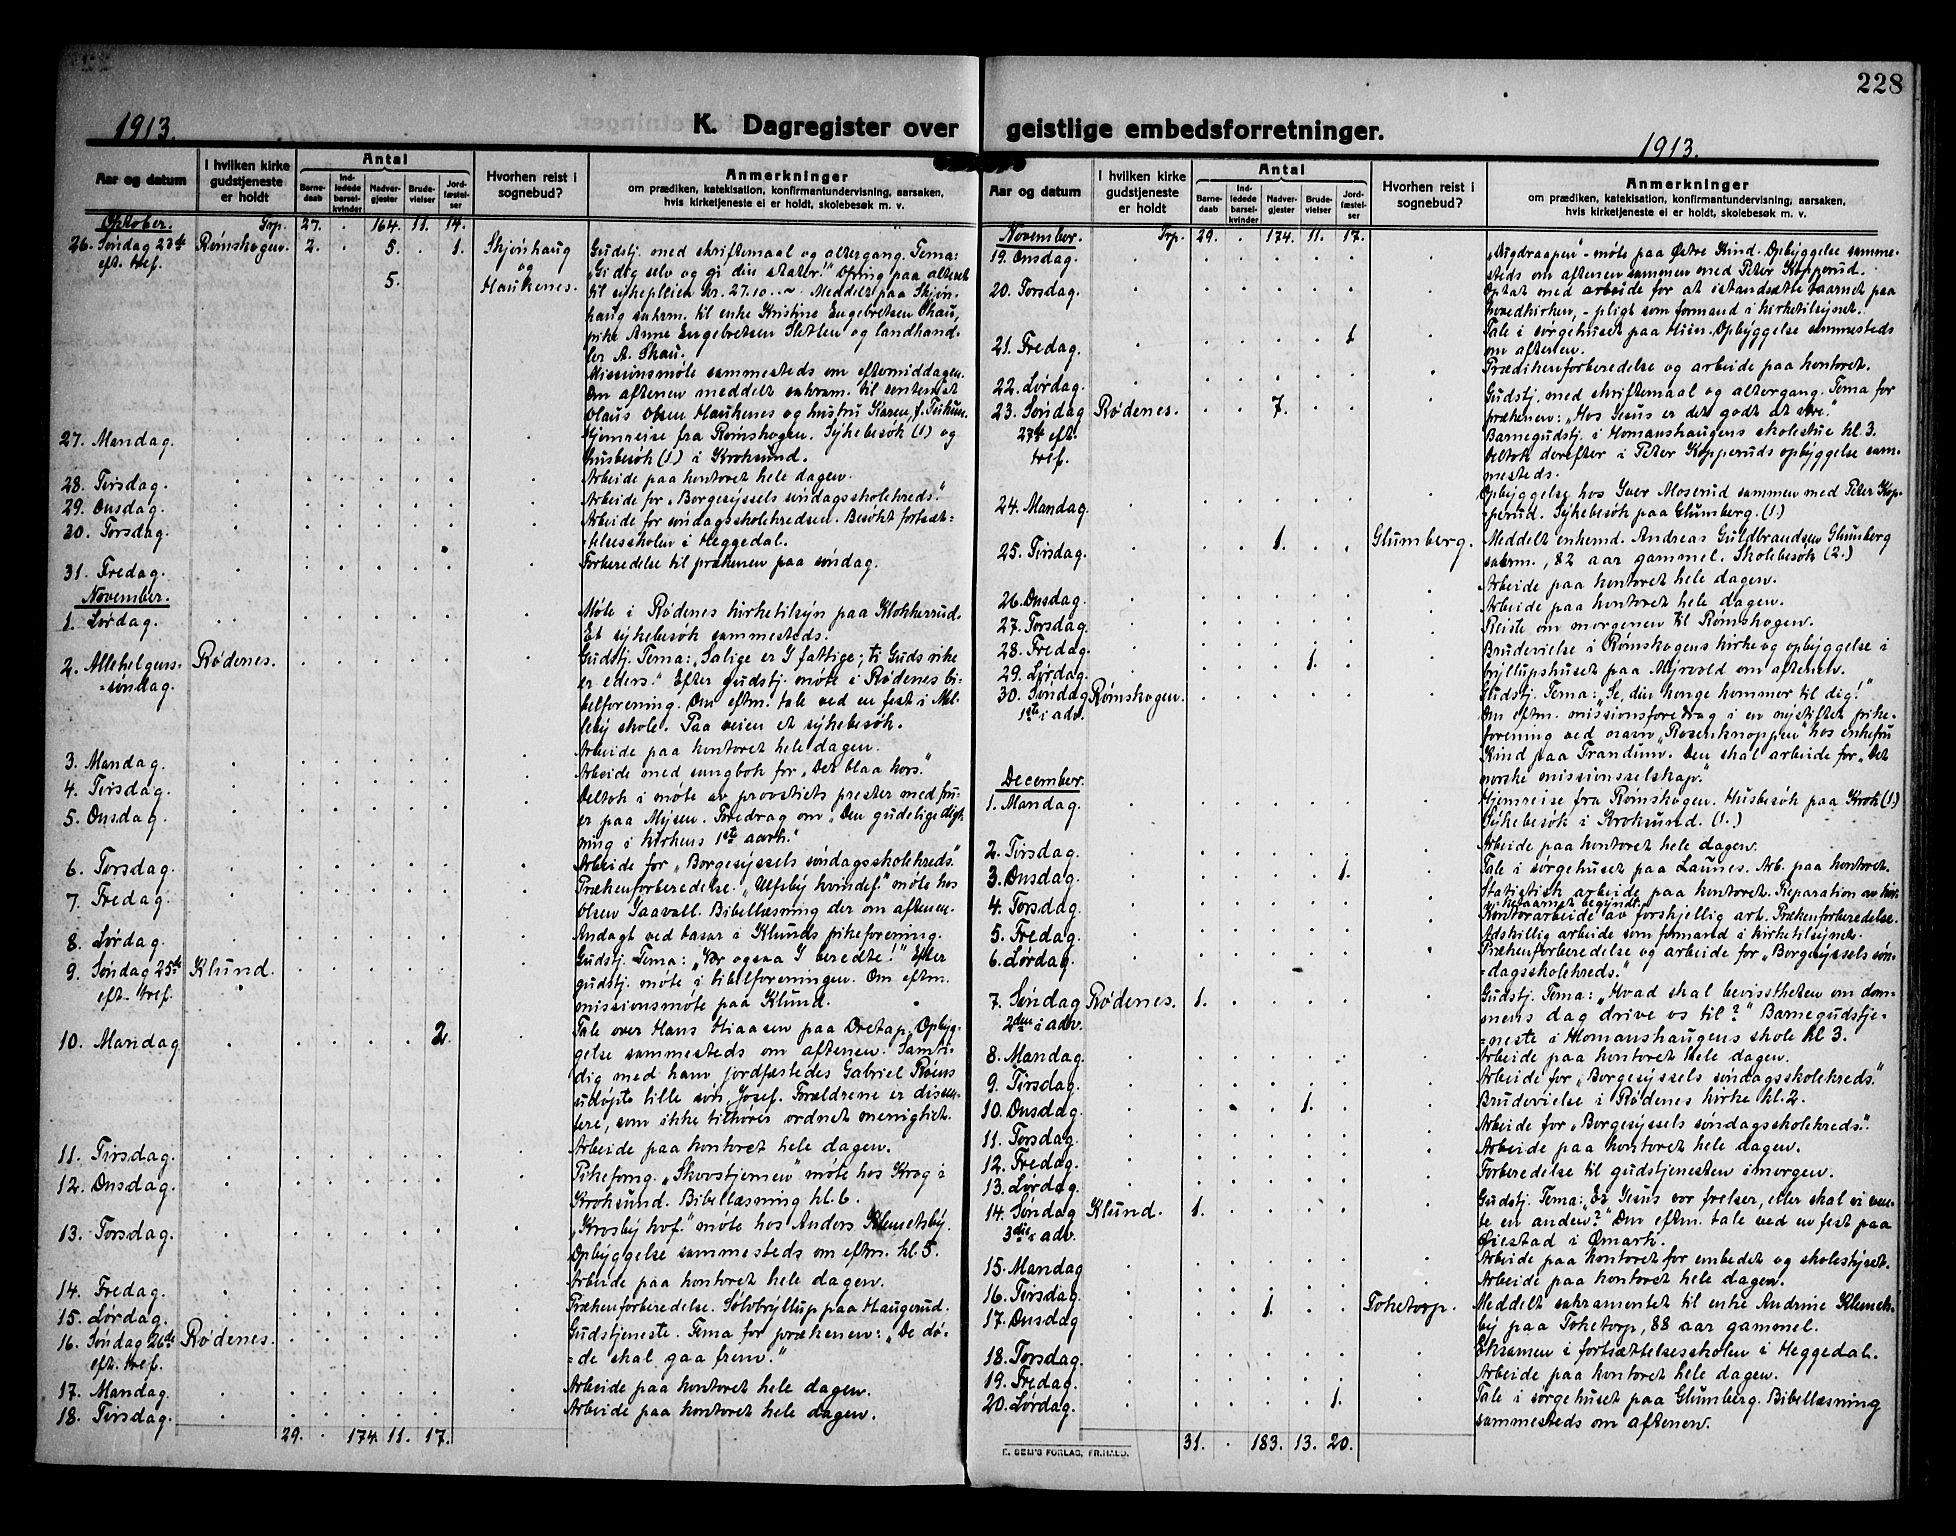 228
1913.
K. Dagregister over
Aar og datum
I hvilken kirke gudstjeneste er holdt
Antal
Barnedaab
Indledede barselkvinder
Nadvergjester
Brudevielser
Jordfæstelser
Hvorhen reist i sognebud?
Anmerkninger
om prædiken, katekisation, konfirmantundervisning, aarsaken,
hvis kirketjeneste ei er holdt, skolebesøk m. v.
Oktober. Trp. 27. . 164. 11. 14.
26. Søndag 23de Rømskogen. 2. . 5. . 1. Skjønhaug Gudstj. med skriftemaal og altergang. Tema:
eft. tref. og „Gi dig selv og gi din skatter!” Ofring paa alteret
5. Haukenes. til sykepleien kr. 27.10. Meddelt paa Skjøn-
haug sakrm. til enke Kristine Engebretsen Skau,
pike Anne Engebretsen Sletten og landhand-
ler A. Skau.
Missionsmøte sammesteds om eftermiddagen.
Om aftenen meddelt sakram. til rentenist
Olaus Olsen Haukenes og hustru Karen f. Teikun.
27. Mandag. Hjemreise fra Rømskogen. Sykebesøk (1) og
husbesøk (1) i Kroksund.
28. Tirsdag. Arbeide paa kontoret hele dagen.
29. Onsdag. Arbeide for „Borgesyssels søndagsskolekreds.”
30. Torsdag. Arbeide for søndagsskolekredsen. Besøkt fortsæt-
telsesskolen i Heggedal.
31. Fredag. Forberedelse til prækenen paa søndag.
November.
1. Lørdag. Møte i Rødenes kirketilsyn paa Klokkerud.
Et sykebesøk sammesteds.
2. Allehelgens- Rødenes. Gudstj. Tema: „Salige er I fattige; ti Guds rike
søndag. er eders.” Efter gudstj. møte i Rødenes bi-
belforening. Om eftm. tale ved en fest i Mel-
leby skole. Paa veien et sykebesøk.
3. Mandag. Arbeide paa kontoret hele dagen.
4. Tirsdag. Arbeide med sangbok for „Det blaa kors.”
5. Onsdag. Deltok i møte av provstiets prester med fru-
er paa Mysen. Foredrag om „Den gudelige digt-
ning i kirkens 1ste aarh.”
6. Torsdag. Arbeide for „Borgesyssels søndagsskolekreds.”
7. Fredag. Prækenforberedelse. „Ulfsby kvindef.” møte hos
Olsen Taavall. Bibellæsning der om aftenen.
8. Lørdag. Andagt ved basar i Klunds pikeforening.
9. Søndag 25de Klund. Gudstj. Tema: „Vær ogsaa I beredte!” Efter
eft. tref. gudstj. møte i bibelforeningen. Om eftm.
missionsmøte paa Klund.
10. Mandag 2. Tale over Hans Hiaasen paa Oretap. Opbyg-
gelse sammesteds om aftenen. Samti-
dig med ham jordfæstedes Gabriel Røens
udøpte lille søn, Josef. Forældrene er dissen-
tere, som ikke tilhører ordnet menighet.
11. Tirsdag. Arbeide paa kontoret hele dagen.
12. Onsdag. Pikeforng. „Skovstjernen” møte hos Krog i
Kroksund. Bibellæsning kl. 6.
13. Torsdag. „Krosby kvf.” møte hos Anders Klemetsby.
Opbyggelse sammesteds om eftm. kl. 5.
14. Fredag. Arbeide paa kontoret hele dagen.
15. Lørdag. Prækenforberedelse. Sølvbryllup paa Haugerud.
16. Søndag 26de Rødenes. Gudstjeneste. Tema for prækenen: „De dø-
eft. tref. de skal gaa frem.”
17. Mandag Arbeide paa kontoret hele dagen.
18. Tirsdag. Arbeide paa kontoret hele dagen.
29. . 174. 11. 17.
geistlige embedsforretninger.
1913.
Aar og datum
I hvilken kirke gudstjeneste er holdt
Antal
Barnedaab
Indledede barselkvinder
Nadvergjester
Brudevielser
Jordfæstelser
Hvorhen reist i sognebud?
Anmerkninger
om prædiken, katekisation, konfirmantundervisning, aarsaken,
hvis kirketjeneste ei er holdt, skolebesøk m. v.
November. Trp. 29. . 174. 11. 17.
19. Onsdag. „Dugdraapen” møte paa Østre Kind. Opbyggelse samme-
steds om aftenen sammen med Peter Kopperud.
20. Torsdag. Optat med arbeide for at istandsætte taarnet paa
hovedkirken, - pligt som formand i kirketilsynet.
21. Fredag. 1 Tale i sørgehuset paa Hien. Opbyggelse sammesteds
om aftenen.
22. Lørdag. Prædikenforberedelse og arbeide paa kontoret.
23. Søndag Rødenes. 7. Gudstj. med skriftemaal og altergang. Tema for
27de eft. prækenen: „Hos Jesus er det godt at være.”
tref. Barnegudstj. i Homanshaugens skolestue kl. 3.
Deltok derefter i Peter Kopperuds opbyggelse sam-
mesteds.
24. Mandag. Opbyggelse hos Iver Moserud sammen med Peter Kop-
perud. Sykebesøk paa Glumberg. (1)
25. Tirsdag. 1. Glumberg. Meddelt enkemd. Andreas Guldbrandsen Glumberg
sakrm., 82 aar gammel. Skolebesøk (2.)
26. Onsdag. Arbeide paa kontoret hele dagen.
27. Torsdag. Arbeide paa kontoret hele dagen.
28. Fredag. Reiste om morgenen til Rømskogen.
29. Lørdag. 1. Brudevielse i Rømskogens kirke og opbyggelse i
bryllupshuset paa Myrvold om aftenen.
30. Søndag Rømskogen. Gudstj. Tema: „Se, din konge kommer til dig!”
1ste i adv. Om eftm. missionsforedrag i en nystiftet pike-
forening ved navn „Rosenknoppen” hos enkefru
Kind paa Trandum. Den skal arbeide for „Det
norske missionsselskap.”
December.
1. Mandag. Hjemreise fra Rømskogen. Husbesøk paa Krok (1)
Sykebesøk i Kroksund. (1.)
2. Tirsdag. Arbeide paa kontoret hele dagen.
3. Onsdag. 1. Tale i sørgehuset paa Launes. Arb. paa kontoret.
4. Torsdag. Statistisk arbeide paa kontoret. Reparation av kir-
ketaarnet begyndt.
5. Fredag. Kontorarbeide av forskjellig art. Prækenforberedelse.
Adskillig arbeide som formand i kirketilsynet.
6. Lørdag. Prækenforberedelse og arbeide for „Borgesyssels søn-
dagsskolekreds.”
7. Søndag Rødenes. 1. Gudstj. Tema: „Hvad skal bevisstheten om dom-
2den i adv. mens dag drive os til?” Barnegudstje-
neste i Homanshaugens skole kl. 3.
8. Mandag. Arbeide paa kontoret hele dagen.
9. Tirsdag. Arbeide for „Borgesyssels søndagsskolekreds.”
10. Onsdag. 1. Brudevielse i Rødenes kirke kl. 2.
11. Torsdag. Arbeide for „Borgesyssels søndagsskolekreds.”
12. Fredag. Arbeide paa kontoret hele dagen.
13. Lørdag. Forberedelse til gudstjenesten imorgen.
14. Søndag Klund. 1. Gudstj. Tema: „Er Jesus vor frelser, eller skal vi ven-
3die i adv. te en anden?” Om eftm. tale ved en fest paa
Øiestad i Ømark.
15. Mandag Arbeide paa kontoret for embedet og skolestyret.
16. Tirsdag. Arbeide paa kontoret hele dagen.
17. Onsdag 1. Toketorp. Meddelt sakramentet til enke Andrine Klemets-
by paa Toketorp, 88 aar gammel.
18. Torsdag. Eksamen i fortsættelsesskolen i Heggedal.
19. Fredag. Arbeide paa kontoret hele dagen.
20. Lørdag. 1. Tale i sørgehuset paa Glumberg. Bibellæsning
sammesteds om aftenen.
31. . 183. 13. 20.
E. SEM'S FORLAG, FR.HALD.